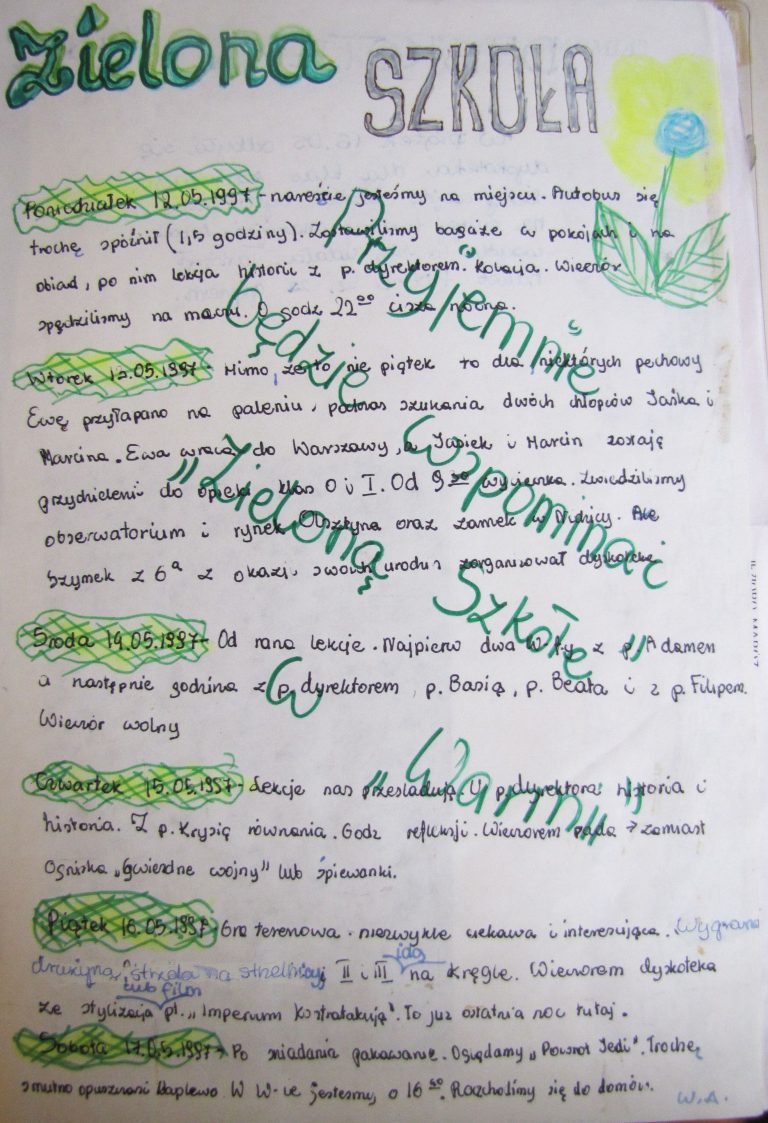 Zielona
SZKOŁA
Poniedziałek 12.05.1997 - nareście jesteśmy na miejscu. Autobus się
trochę spóźnił (1,5 godziny). Zostawiliśmy bagaże w pokojach i na
obiad, po nim lekcja historii z p. dyrektorem. Kolacja. Wieczór
spędziliśmy na meczu. O godz 22⁰⁰ cisza nocna.
Wtorek 12.05.1997 - Mimo, że to nie piątek to dla niektórych pechowy
Ewę przyłapano na paleniu, podczas szukania dwóch chłopców Jaśka i
Marcina. Ewa wraca do Warszawy, a Jasiek i Marcin zostają
przydzieleni do opieki klas 0 i I. Od 9³⁰ wycieczka. Zwiedziliśmy
obserwatorium i rynek Olsztyna oraz zamek w Nidzicy. Ale
Szymek z 6ᵃ z okazji swoich urodzin zorganizował dyskotekę
Środa 14.05.1997 - Od rana lekcje. Najpierw dwa W-fy z p. Adamem
a następnie godzina z p. dyrektorem, p. Basią, p. Beatą i z p. Filipem.
Wieczór wolny
Czwartek 15.05.1997 - Lekcje nas prześladują. U p. dyrektora historia i
historia. Z p. Krysią równania. Godz refleksji. Wieczorem pada → zamiast
Ogniska „gwiezdne wojny" lub śpiewanki.
Piątek 16.05.1997 - Gra terenowa. niezwykle ciekawa i interesująca. Wygrana
drużyna strzela na strzelnicy, II i III idą na kręgle. Wieczorem dyskoteka
lub film
ze stylizacją pt. „Imperium kontratakuje". To już ostatnia noc tutaj.
Sobota 17.05.1997 - Po śniadaniu pakowanie. Oglądamy „Powrót Jedi". Trochę
smutno opuszczać Waplewo W W-ie jesteśmy o 16⁵⁰. Rozchodzimy się do domów.
W.A.
Przyjemnie
będzie
Wspominać
„Zieloną
Szkołę"
W
„Warmii"